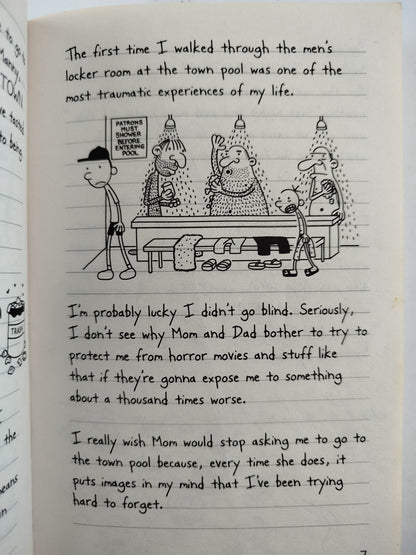 The first time I walked through the men's
locker room at the town pool was one of the
most traumatic experiences of my life.
PATRONS
MUST
SHOWER
BEFORE
ENTERING
POOL
I'm probably lucky I didn't go blind. Seriously,
I don't see why Mom and Dad bother to try to
protect me from horror movies and stuff like
that if they're gonna expose me to something
about a thousand times worse.
I really wish Mom would stop asking me to go to
the town pool because, every time she does, it
puts images in my mind that I've been trying
hard to forget.
to go
TOWN
to being
TRASH
the